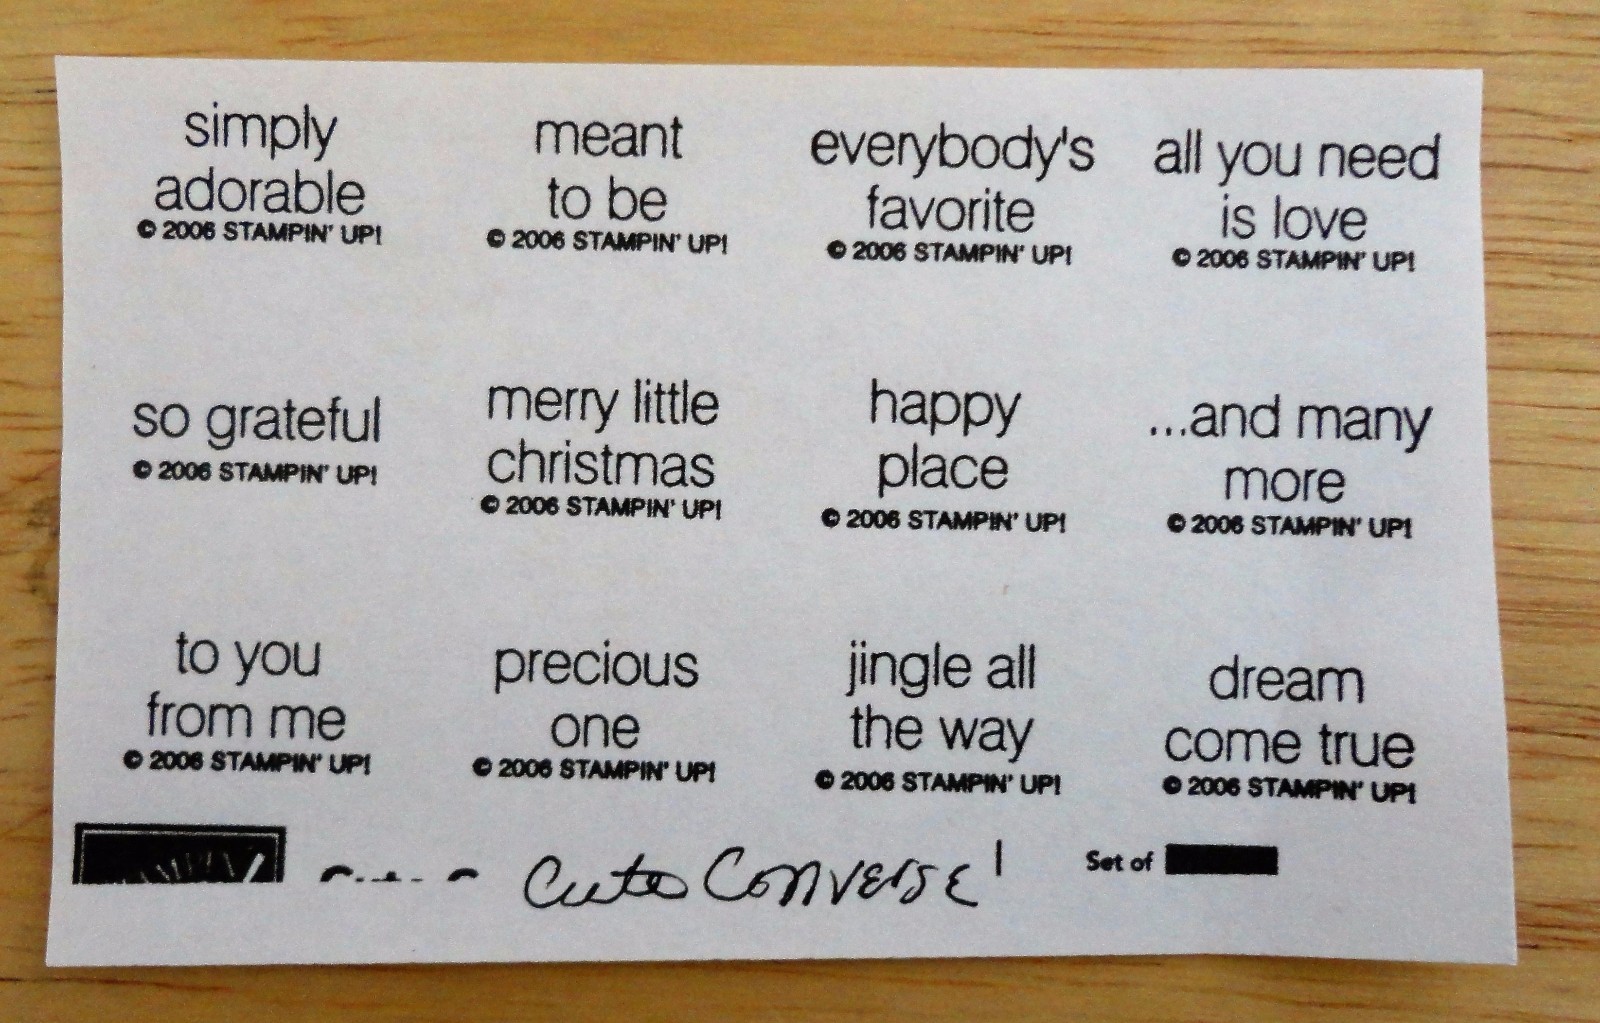 simply
adorable
© 2006 STAMPIN' UP!
meant
to be
© 2006 STAMPIN' UP!
everybody's
favorite
© 2006 STAMPIN' UP!
all you need
is love
© 2006 STAMPIN' UP!
so grateful
© 2006 STAMPIN' UP!
merry little
christmas
© 2006 STAMPIN' UP!
happy
place
© 2006 STAMPIN' UP!
...and many
more
© 2006 STAMPIN' UP!
to you
from me
© 2006 STAMPIN' UP!
precious
one
© 2006 STAMPIN' UP!
jingle all
the way
© 2006 STAMPIN' UP!
dream
come true
© 2006 STAMPIN' UP!
Cute Converse
Set of